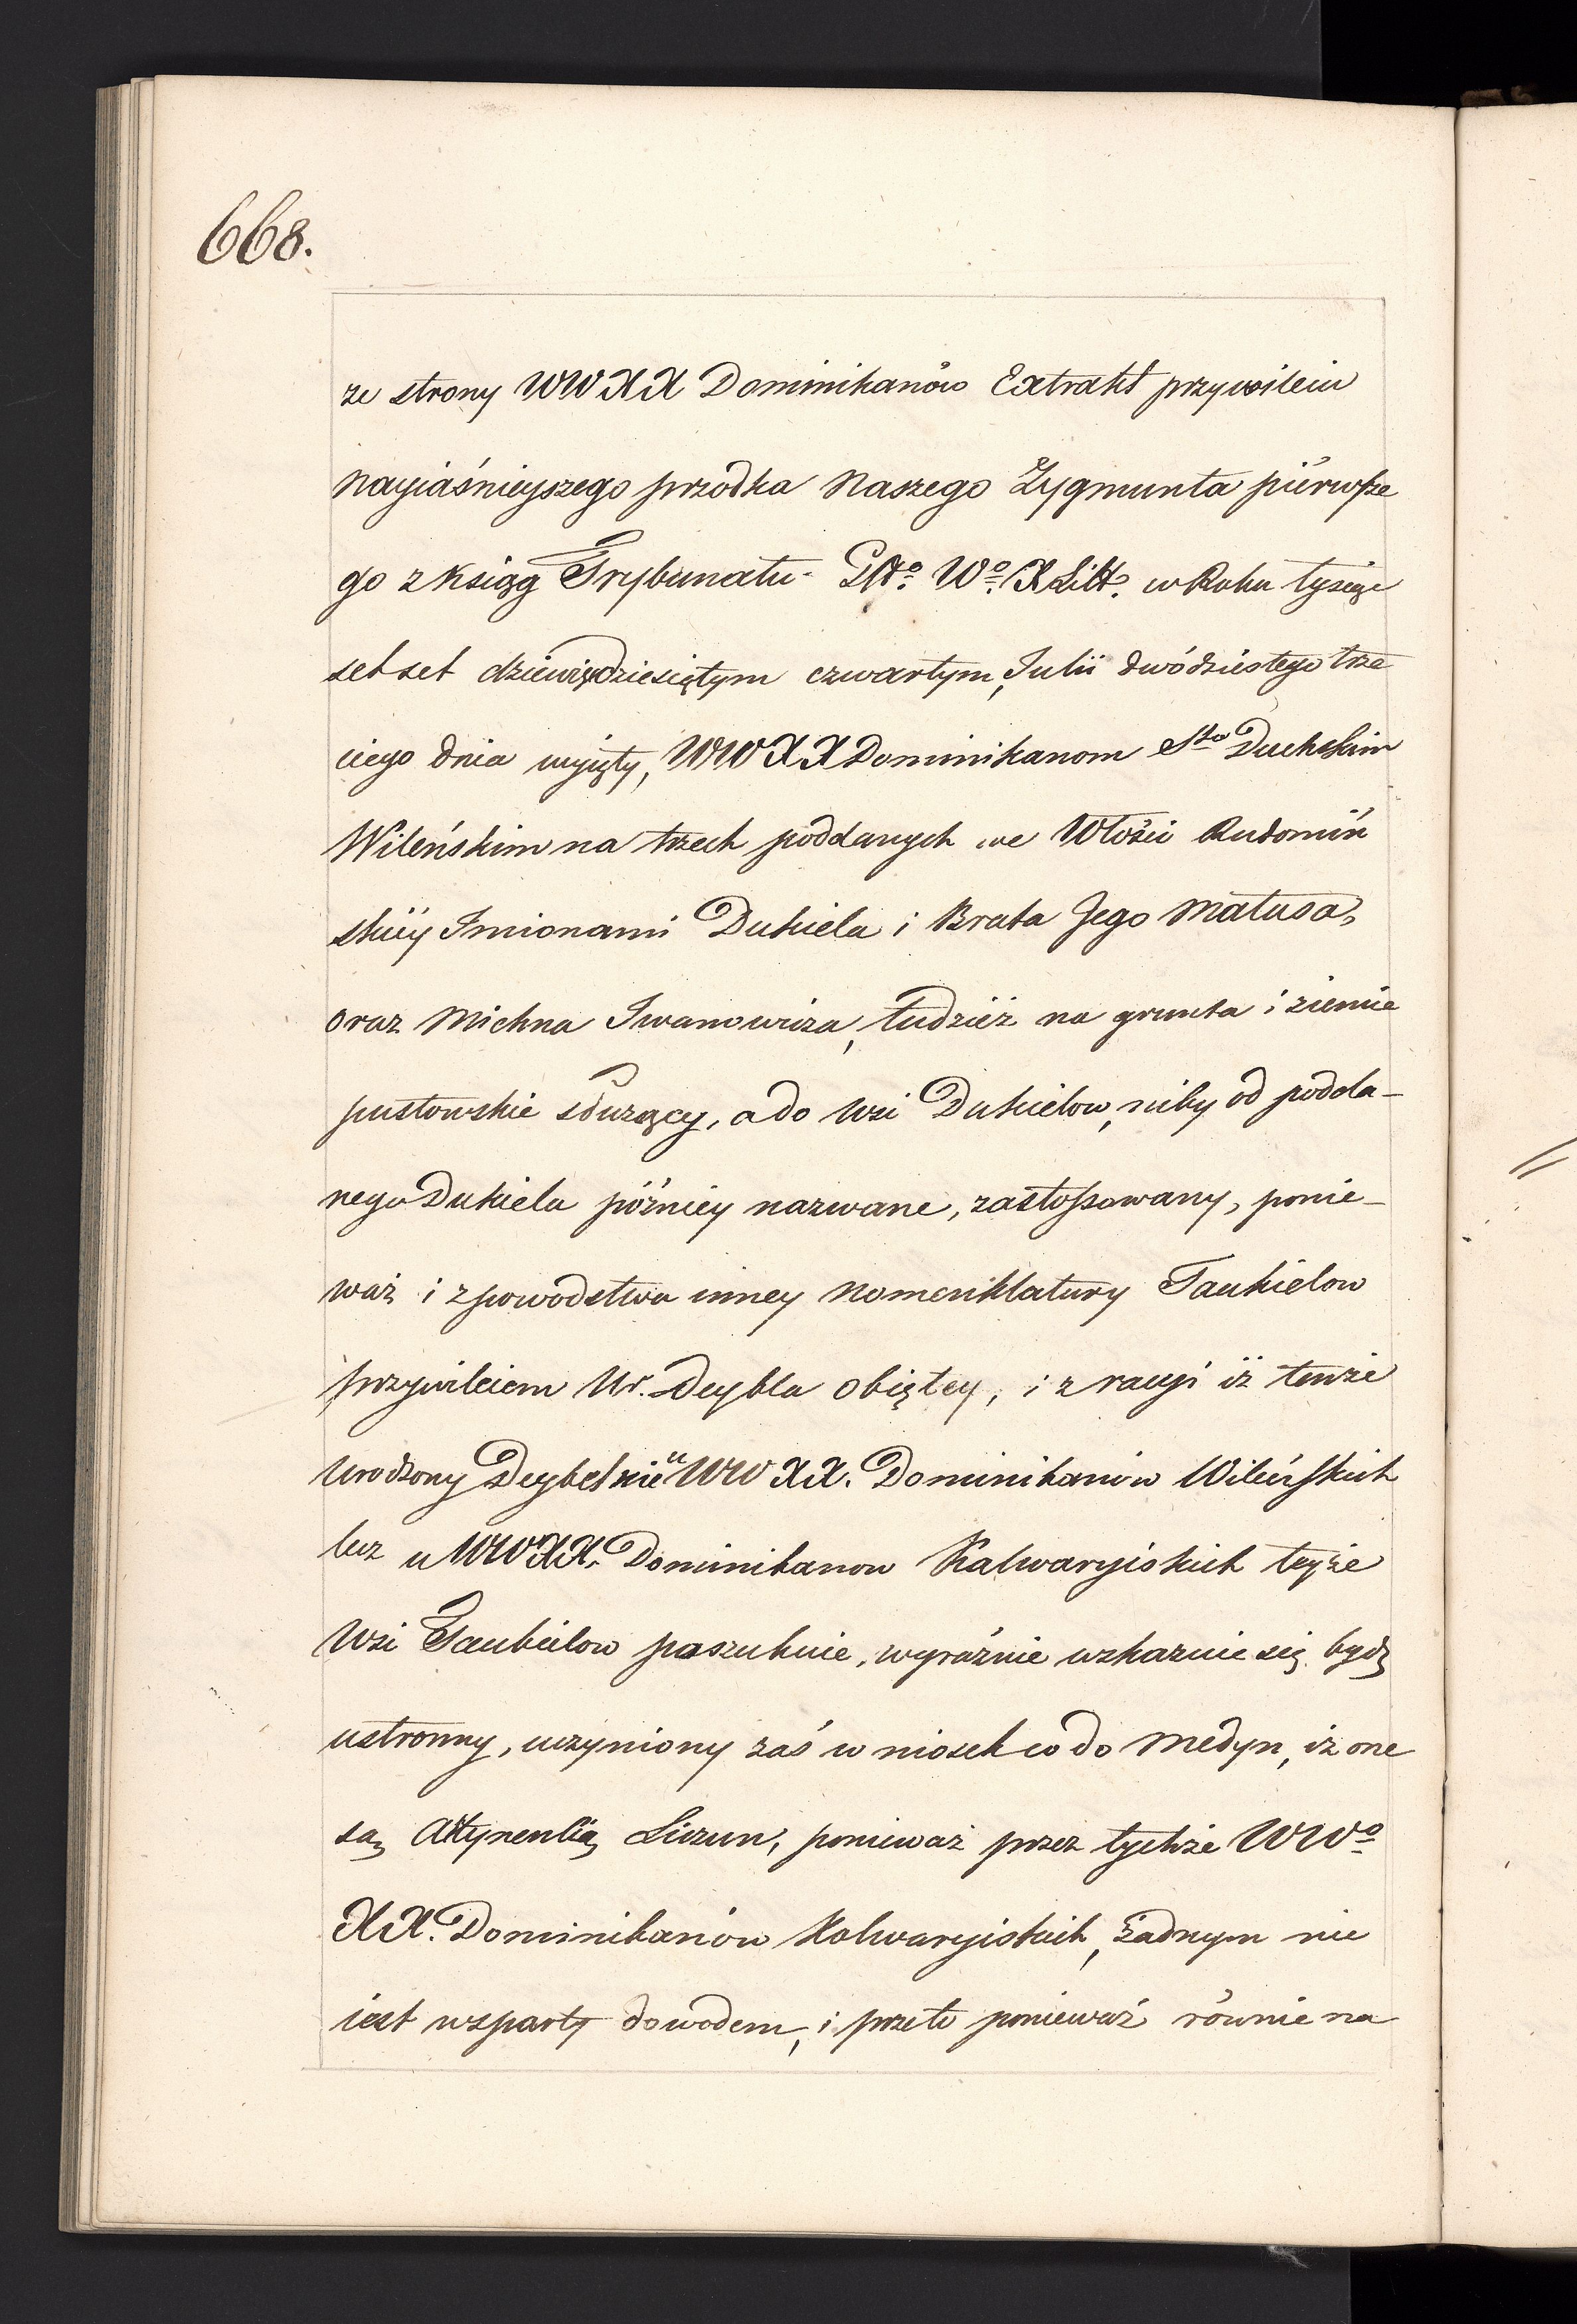 668.
ze strony WW XX Dominikanów Extrakt przywileiu
Nayiaśnieyszego przodka Naszego Zygmunta piérwsze
go z Ksiąg Trybunatu Gło W° X Litt° w Roku tysiąc
set set dziewięćdziesiątym czwartym, Julii dwódziestego trze
ciego dnia wyięty, WW XX Dominikanom Sto Duchskim
Wileńskim na trzech poddanych we Włości Rudomiń
skiéy Imionami Dukiela i Brata Jego Matusa,
oraz Michna Iwanowicza, tudziéż na grunta i ziemie
pustowskie służący, a do Wsi Dukielow, niby od podda-
nego Dukiela późniéy nazwane, zastossowany, ponie-
waż i z powodstwa inney Nomenklatury Taukielow
przywileiem Ur. Deybla obiętey, i z racyi iż tenże
Urodzony Deybel nie u WW XX. Dominikanów Wileńskich
lecz u WW XX. Dominikanow Kalwaryiskich teyże
Wsi Taukielow poszukuie, wyraźnie wskazuie się bydź
ustronny, uczyniony zaś wniosek co do Medyn, iż one
są Attynencią Liczun, ponieważ przez tychże WW°
XX. Dominikanów Kalwaryiskich, żadnym nie
iest wsparty dowodem, i przeto ponieważ równie na